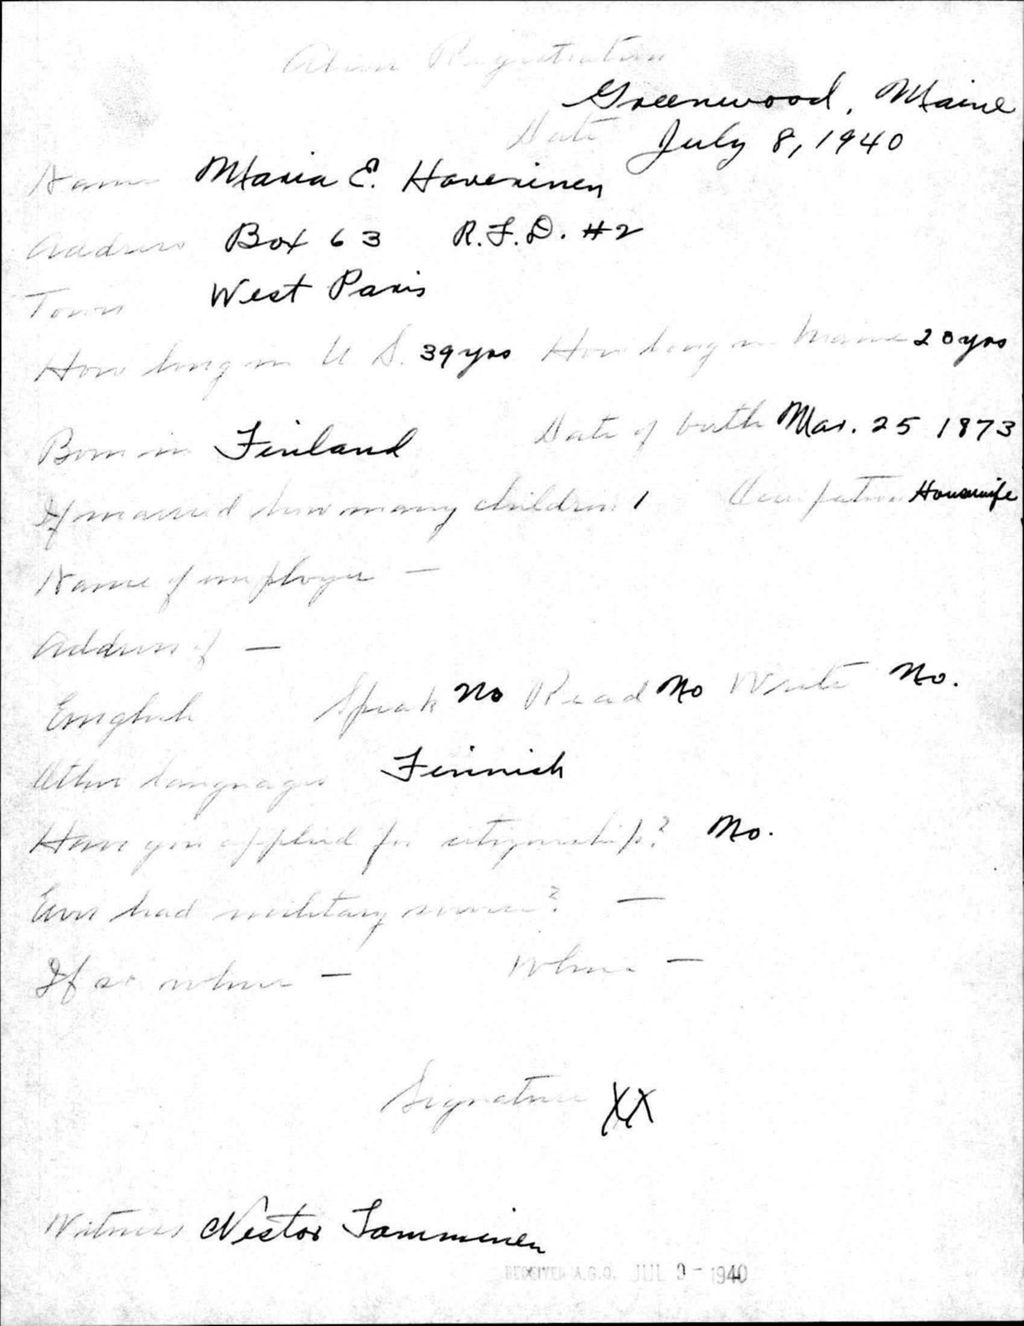 Alien Registration
Greenwood, Maine
Date July 8, 1940
Name Maria E. Haverinen
Address Box 63 R.F.D. #2
Town West Paris
How long in U.S. 39 yrs How long in Maine 20 yrs
Born in Finland Date of birth Mar. 25 1873
If married how many children 1 Occupation Housewife
Name of employer —
Address of —
English Speak No Read No Write No.
Other languages Finnish
Have you applied for citizenship? No.
Ever had military service? —
If so where — When —
Signature XX
Witness Nestor Tamminen
RECEIVED A.G.O. JUL 9 - 1940